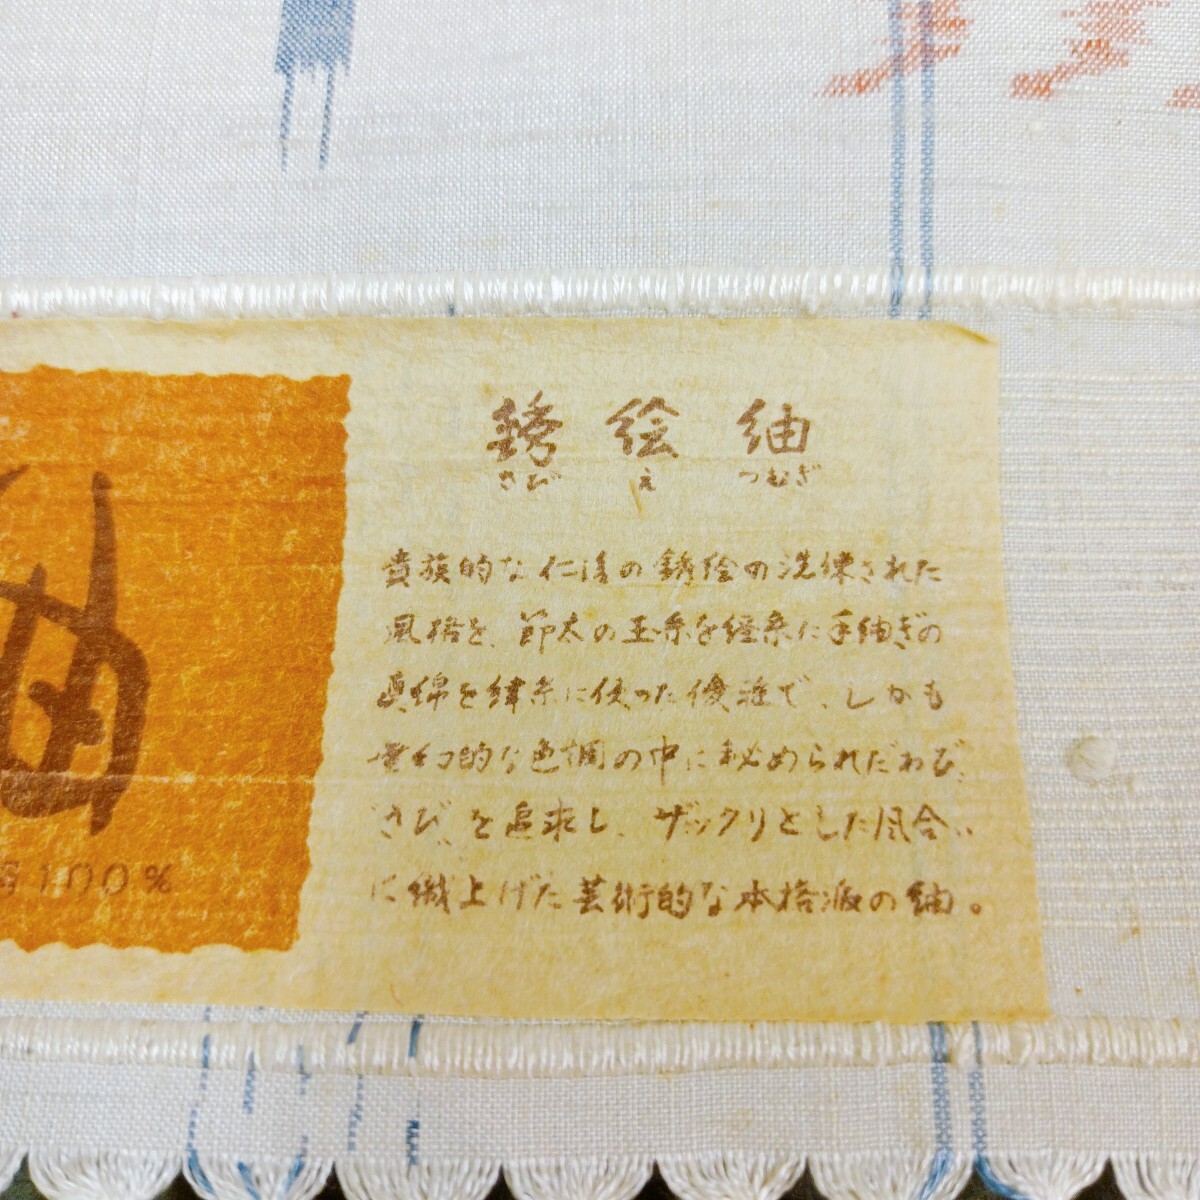 錆絵紬
さび え つむぎ
貴族的な仁清の錆絵の洗練された
風格を、節太の玉糸を経糸に手紬ぎの
真綿を緯糸に使った優雅で、しかも
幻的な色調の中に秘められたわび、
さび、を追求し、ザックリとした風合い
に織上げた芸術的な本格派の紬。
100%